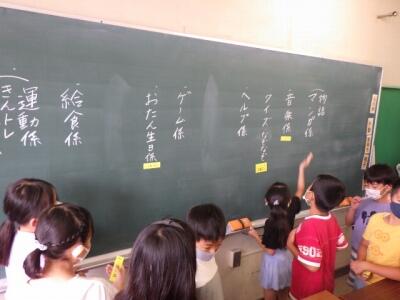 物語
(マンガ係
・音楽係
クイズなぞなぞ
・ヘルプ係
・ゲーム係
・おたん生日係
・給食係
・運動係
(きんトレ